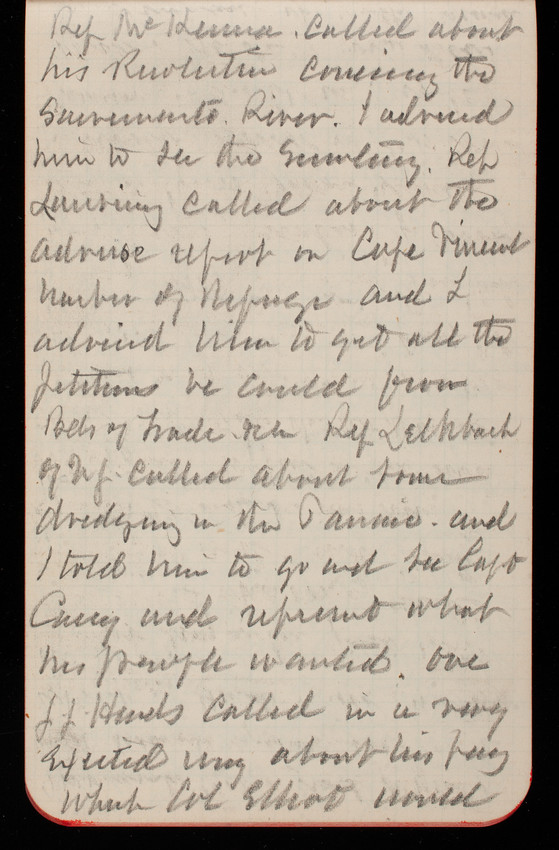 Rep McKenna. called about
his Resolution concerning the
Sacramento River. I advised
him to see the Secretary. Rep
Lansing called about the
adverse report on Cape Vincent
harbor of Refuge and I
advised him to get all the
petitions he could from
Bds of Trade &c Rep Lehlbach
of NJ. called about some
dredging in the Passaic. and
I told him to go and see Capt
Casey and represent what
his people wanted. One
J J Hands called in a very
excited way about his pay
which Col Elliot would